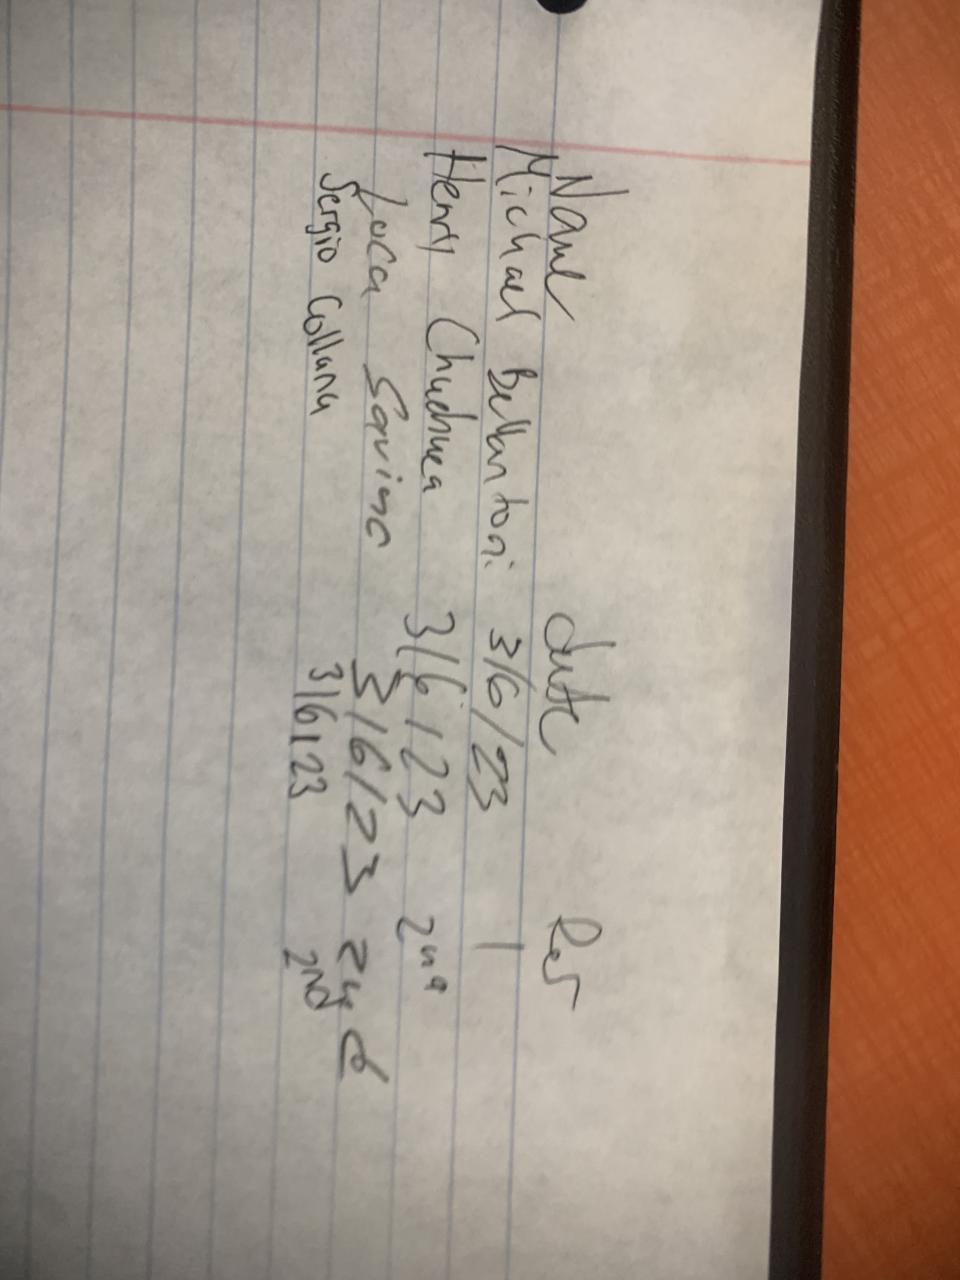 Name date Per
Michael Bellantoni 3/6/23 1
Henry 3/6/23 2nd
Luca Savino 3/6/23 2nd
Sergio Collana 3/6/23 2nd